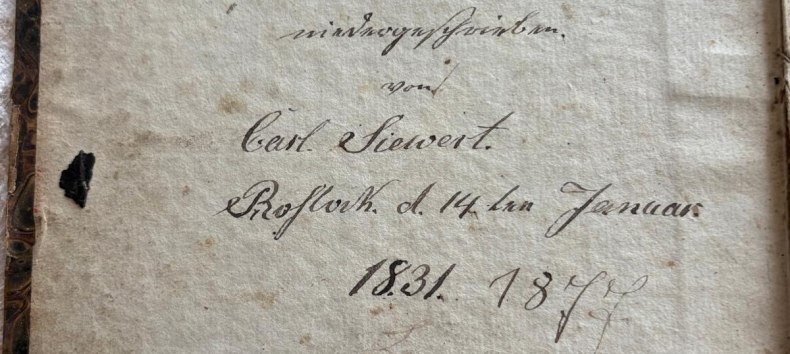 niedergeschrieben.
von
Carl Siewert.
Rostock. d. 14. ten Januar.
1831. 1877